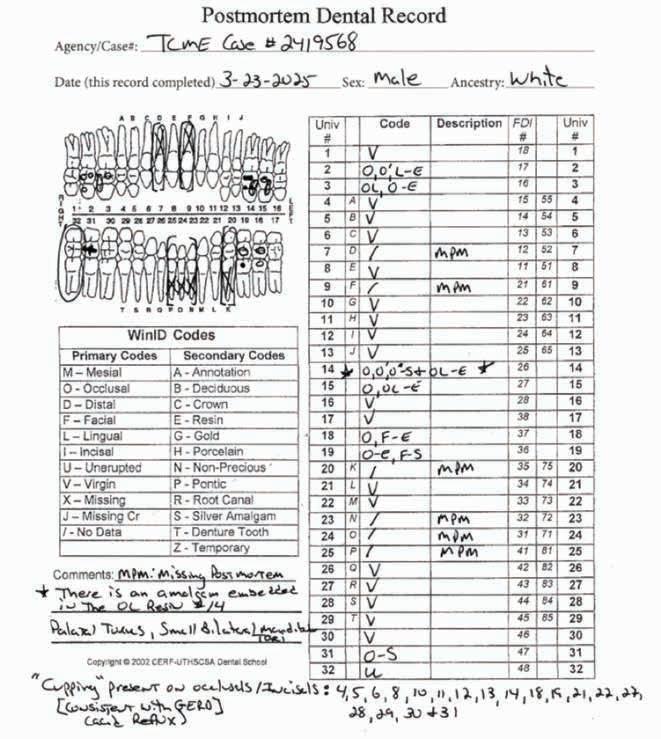 Postmortem Dental Record
Agency/Case#: TCME Case # 2419568
Date (this record completed) 3-23-2025 Sex: Male Ancestry: White
A B C D E F G H I J
RIGHT LEFT
1 2 3 4 5 6 7 8 9 10 11 12 13 14 15 16
32 31 30 29 28 27 26 25 24 23 22 21 20 19 18 17
T S R Q P O N M L K
Univ # Code Description FDI # Univ #
1 V 18 1
2 O,O',L-E 17 2
3 OL,O-E 16 3
4 A V 15 55 4
5 B V 14 54 5
6 C V 13 53 6
7 D / MPM 12 52 7
8 E V 11 51 8
9 F / MPM 21 61 9
10 G V 22 62 10
11 H V 23 63 11
12 I V 24 64 12
13 J V 25 65 13
14 * O,O',O"-S+OL-E * 26 14
15 O,OL-E 27 15
16 V 28 16
17 V 38 17
18 O,F-E 37 18
19 O-E,F-S 36 19
20 K / MPM 35 75 20
21 L V 34 74 21
22 M V 33 73 22
23 N / MPM 32 72 23
24 O / MPM 31 71 24
25 P / MPM 41 81 25
26 Q V 42 82 26
27 R V 43 83 27
28 S V 44 84 28
29 T V 45 85 29
30 V 46 30
31 O-S 47 31
32 U 48 32
WinID Codes
Primary Codes Secondary Codes
M - Mesial A - Annotation
O - Occlusal B - Deciduous
D - Distal C - Crown
F - Facial E - Resin
L - Lingual G - Gold
I - Incisal H - Porcelain
U - Unerupted N - Non-Precious
V - Virgin P - Pontic
X - Missing R - Root Canal
J - Missing Cr S - Silver Amalgam
/ - No Data T - Denture Tooth
Z - Temporary
Comments: MPM: Missing Postmortem
* There is an amalgam embedded
in the OL Resin #14
Palatal Torus, Small Bilateral Mandibular
TORI
Copyright © 2002 CERF-UTHSCSA Dental School
"Cupping" present on occlusals/Incisals: 4,5,6,8,10,11,12,13,14,18,19,21,22,27,
[consistent with GERD] 28,29,30+31
(acid Reflux)